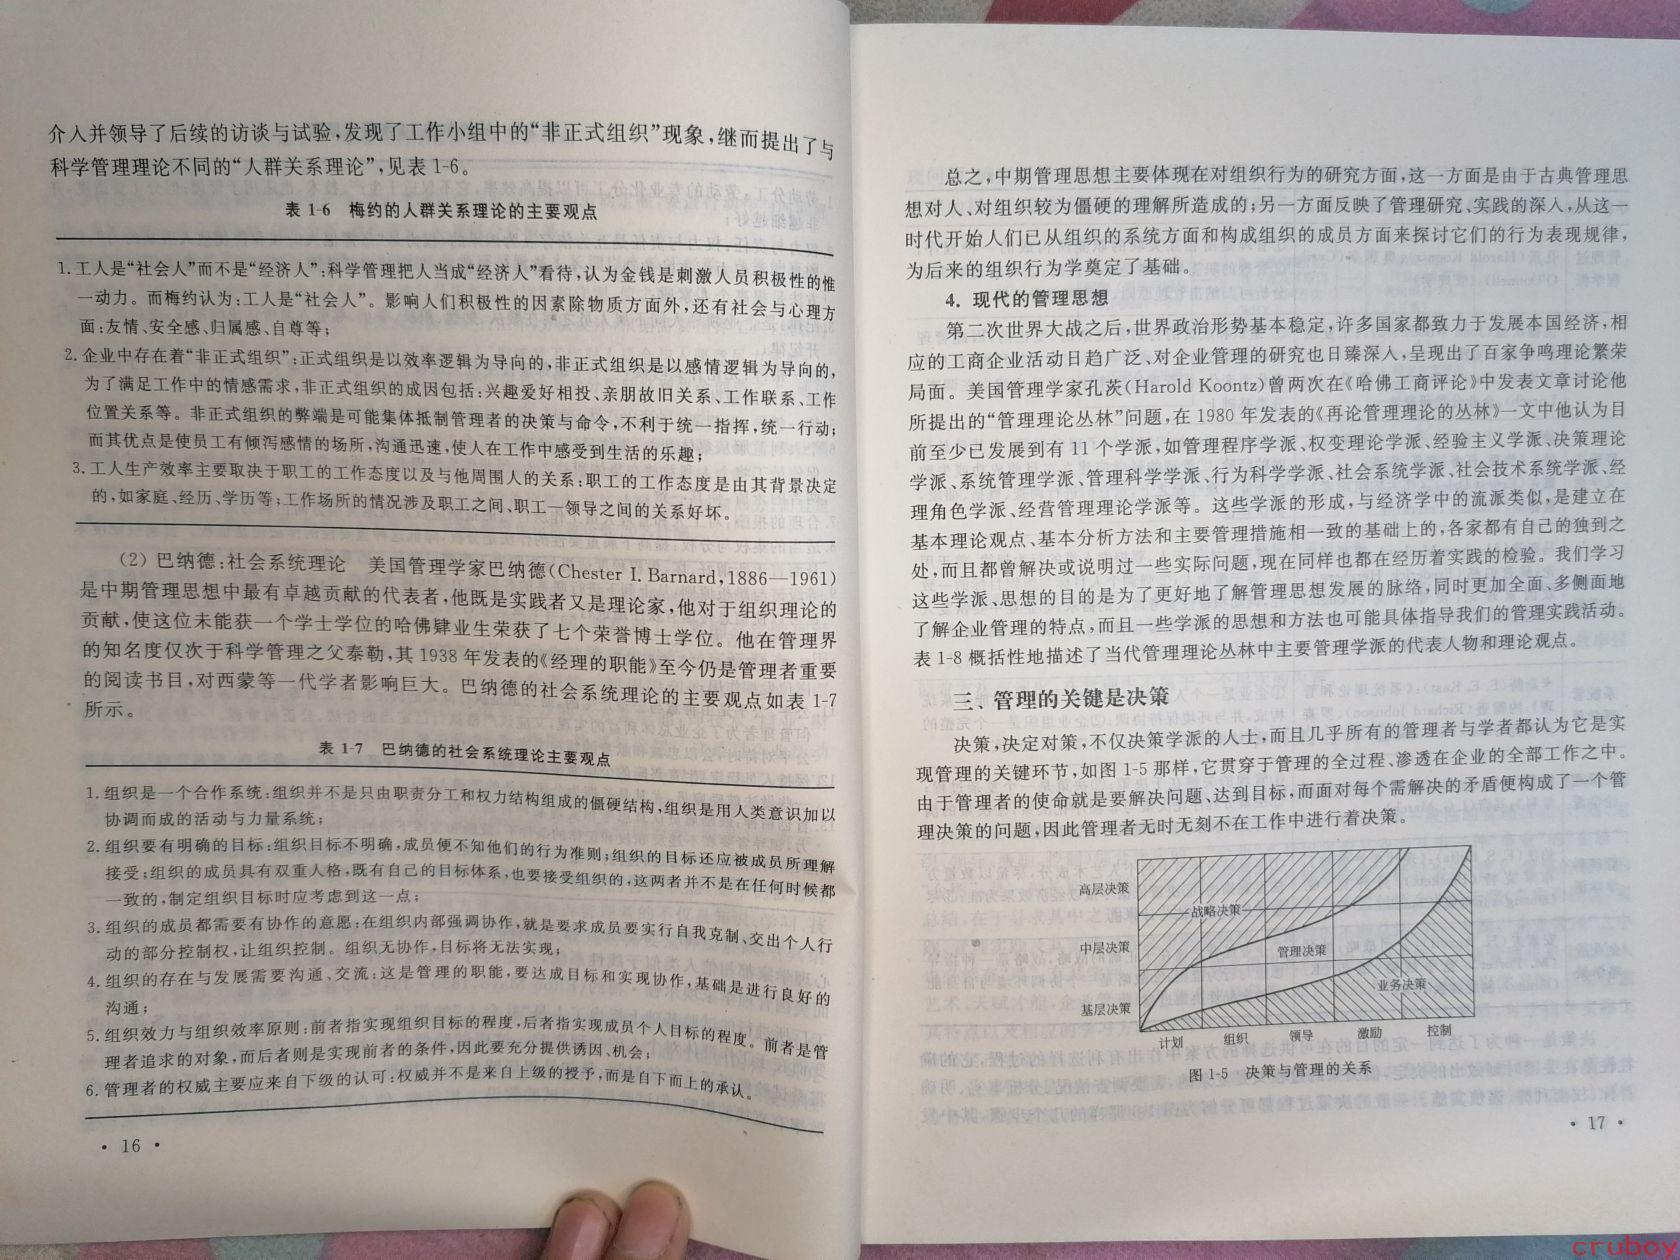 介入并领导了后续的访谈与试验,发现了工作小组中的“非正式组织”现象,继而提出了与
科学管理理论不同的“人群关系理论”,见表 1-6。
表 1-6 梅约的人群关系理论的主要观点
1. 工人是“社会人”而不是“经济人”:科学管理把人当成“经济人”看待,认为金钱是刺激人员积极性的惟
一动力。而梅约认为:工人是“社会人”。影响人们积极性的因素除物质方面外,还有社会与心理方
面:友情、安全感、归属感、自尊等;
2. 企业中存在着“非正式组织”:正式组织是以效率逻辑为导向的,非正式组织是以感情逻辑为导向的,
为了满足工作中的情感需求,非正式组织的成因包括:兴趣爱好相投、亲朋故旧关系、工作联系、工作
位置关系等。非正式组织的弊端是可能集体抵制管理者的决策与命令,不利于统一指挥,统一行动;
而其优点是使员工有倾泻感情的场所,沟通迅速,使人在工作中感受到生活的乐趣;
3. 工人生产效率主要取决于职工的工作态度以及与他周围人的关系:职工的工作态度是由其背景决定
的,如家庭、经历、学历等;工作场所的情况涉及职工之间、职工—领导之间的关系好坏。
(2) 巴纳德:社会系统理论 美国管理学家巴纳德(Chester I. Barnard,1886—1961)
是中期管理思想中最有卓越贡献的代表者,他既是实践者又是理论家,他对于组织理论的
贡献,使这位未能获一个学士学位的哈佛肄业生荣获了七个荣誉博士学位。他在管理界
的知名度仅次于科学管理之父泰勒,其 1938 年发表的《经理的职能》至今仍是管理者重要
的阅读书目,对西蒙等一代学者影响巨大。巴纳德的社会系统理论的主要观点如表 1-7
所示。
表 1-7 巴纳德的社会系统理论主要观点
1. 组织是一个合作系统:组织并不是只由职责分工和权力结构组成的僵硬结构,组织是用人类意识加以
协调而成的活动与力量系统;
2. 组织要有明确的目标:组织目标不明确,成员便不知他们的行为准则;组织的目标还应被成员所理解
接受:组织的成员具有双重人格,既有自己的目标体系,也要接受组织的,这两者并不是在任何时候都
一致的,制定组织目标时应考虑到这一点;
3. 组织的成员都需要有协作的意愿:在组织内部强调协作,就是要求成员要实行自我克制、交出个人行
动的部分控制权,让组织控制。组织无协作,目标将无法实现;
4. 组织的存在与发展需要沟通、交流:这是管理的职能,要达成目标和实现协作,基础是进行良好的
沟通;
5. 组织效力与组织效率原则:前者指实现组织目标的程度,后者指实现成员个人目标的程度。前者是管
理者追求的对象,而后者则是实现前者的条件,因此要充分提供诱因、机会;
6. 管理者的权威主要应来自下级的认可:权威并不是来自上级的授予,而是自下而上的承认。
• 16 •
总之,中期管理思想主要体现在对组织行为的研究方面,这一方面是由于古典管理思
想对人、对组织较为僵硬的理解所造成的;另一方面反映了管理研究、实践的深入,从这一
时代开始人们已从组织的系统方面和构成组织的成员方面来探讨它们的行为表现规律,
为后来的组织行为学奠定了基础。
4. 现代的管理思想
第二次世界大战之后,世界政治形势基本稳定,许多国家都致力于发展本国经济,相
应的工商企业活动日趋广泛、对企业管理的研究也日臻深入,呈现出了百家争鸣理论繁荣
局面。美国管理学家孔茨(Harold Koontz)曾两次在《哈佛工商评论》中发表文章讨论他
所提出的“管理理论丛林”问题,在 1980 年发表的《再论管理理论的丛林》一文中他认为目
前至少已发展到有 11 个学派,如管理程序学派、权变理论学派、经验主义学派、决策理论
学派、系统管理学派、管理科学学派、行为科学学派、社会系统学派、社会技术系统学派、经
理角色学派、经营管理理论学派等。这些学派的形成,与经济学中的流派类似,是建立在
基本理论观点、基本分析方法和主要管理措施相一致的基础上的,各家都有自己的独到之
处,而且都曾解决或说明过一些实际问题,现在同样也都在经历着实践的检验。我们学习
这些学派、思想的目的是为了更好地了解管理思想发展的脉络,同时更加全面、多侧面地
了解企业管理的特点,而且一些学派的思想和方法也可能具体指导我们的管理实践活动。
表 1-8 概括性地描述了当代管理理论丛林中主要管理学派的代表人物和理论观点。
三、管理的关键是决策
决策,决定对策,不仅决策学派的人士,而且几乎所有的管理者与学者都认为它是实
现管理的关键环节,如图 1-5 那样,它贯穿于管理的全过程、渗透在企业的全部工作之中。
由于管理者的使命就是要解决问题、达到目标,而面对每个需解决的矛盾便构成了一个管
理决策的问题,因此管理者无时无刻不在工作中进行着决策。
高层决策
战略决策
中层决策
管理决策
业务决策
基层决策
计划 组织 领导 激励 控制
图 1-5 决策与管理的关系
• 17 •
cruboy